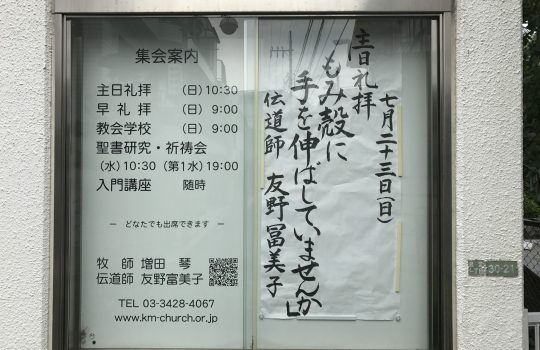 集会案内
主日礼拝 (日) 10:30
早礼拝 (日) 9:00
教会学校 (日) 9:00
聖書研究・祈祷会
(水) 10:30 (第1水) 19:00
入門講座 随時
― どなたでも出席できます ―
牧師 増田 琴
伝道師 友野富美子
TEL 03-3428-4067
www.km-church.or.jp
七月二十三日(日)
主日礼拝
「もみ殻に
手を伸ばしていませんか」
伝道師 友野冨美子